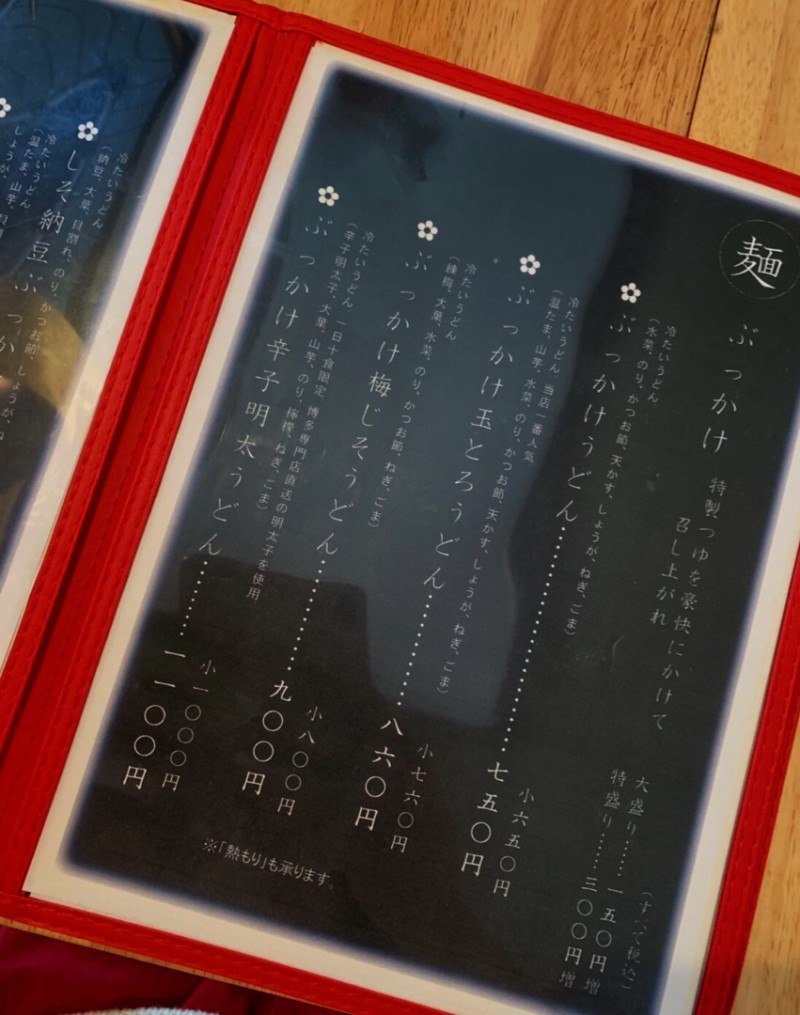 麺
ぶっかけ
特製つゆを豪快にかけて
召し上がれ
(すべて税込)
大盛り……一五〇円増
特盛り……三〇〇円増
冷たいうどん
(水菜、のり、かつお節、天かす、しょうが、ねぎ、ごま)
ぶっかけうどん……七五〇円
小六五〇円
冷たいうどん 当店一番人気
(温たま、山芋、水菜、のり、かつお節、天かす、しょうが、ねぎ、ごま)
ぶっかけ玉とろうどん……八六〇円
小七六〇円
冷たいうどん
(練梅、大葉、水菜、のり、かつお節、ねぎ、ごま)
ぶっかけ梅じそうどん……九〇〇円
小八〇〇円
冷たいうどん 一日十食限定 博多専門店直送の明太子を使用
(辛子明太子、大葉、山芋、のり、檸檬、ねぎ、ごま)
ぶっかけ辛子明太うどん……一一〇〇円
小一〇〇〇円
※「熱もり」も承ります。
冷たいうどん
(納豆、大葉、貝割れ、のり、かつお節、しょうが、ね
しそ納豆ぶっか
冷たいうどん
(温たま、山芋、貝割
しょうが、